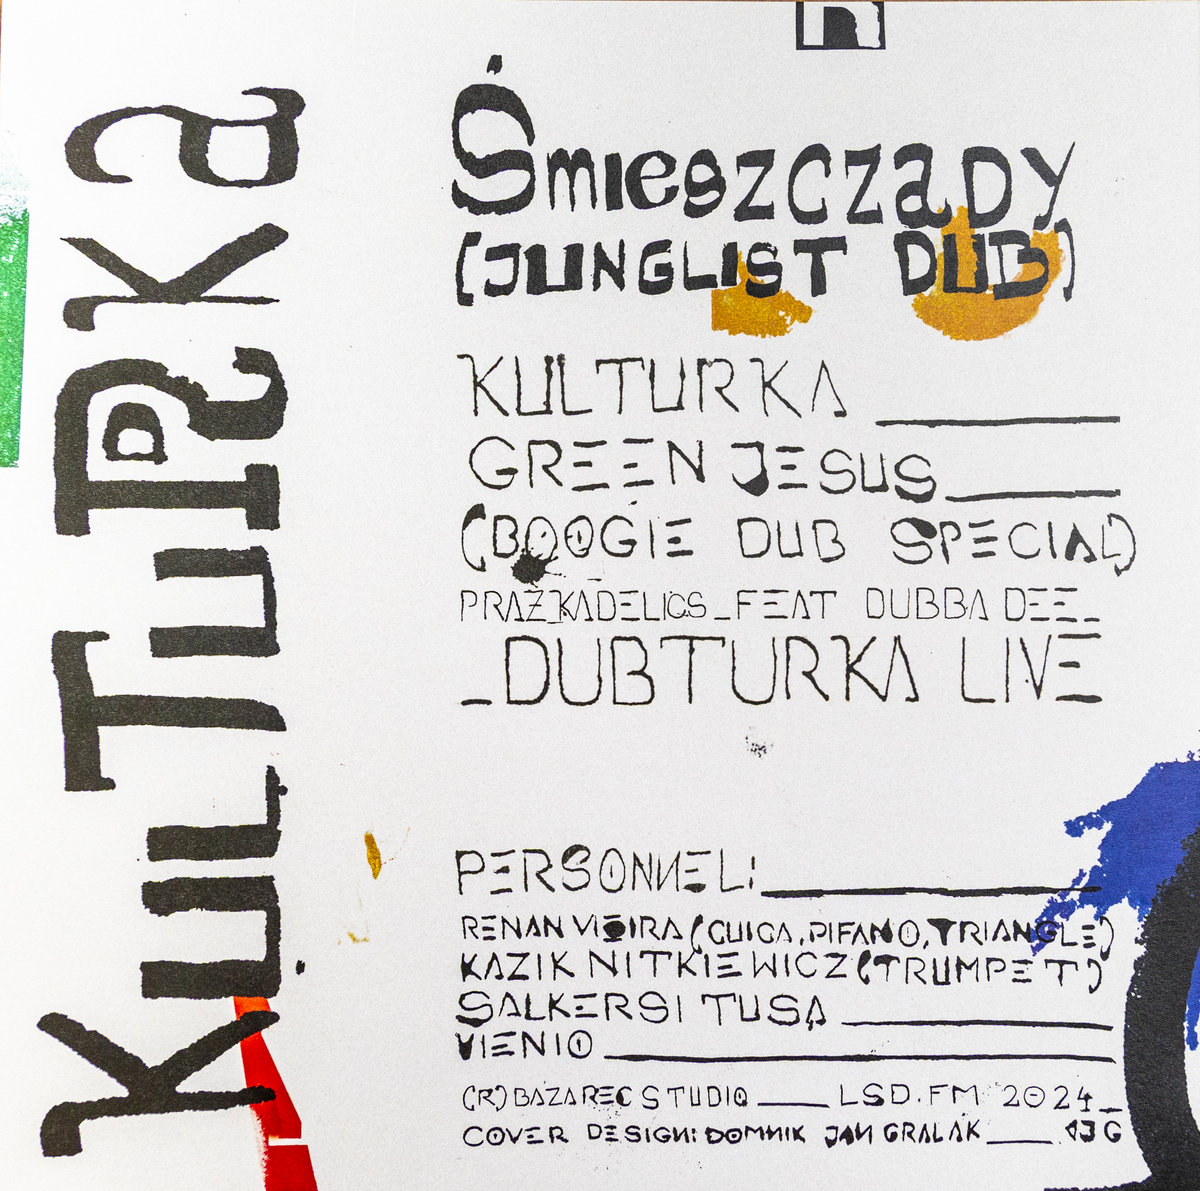 KULTURKA
Śmieszczady
(JUNGLIST DUB)
KULTURKA
GREEN JESUS
(BOOGIE DUB SPECIAL)
PRAŻKADELICS_FEAT DUBBA DEE_
_DUBTURKA LIVE
PERSONNEL:
RENAN VIEIRA (CUICA, PIFANO, TRIANGLE)
KAZIK NITKIEWICZ (TRUMPET)
SALKERSI TUSA
VIENIO
(R) BAZAREC STUDIO ___ LSD.FM 2024_
COVER DESIGN: DOMINIK JAN GRALAK ___ DJG